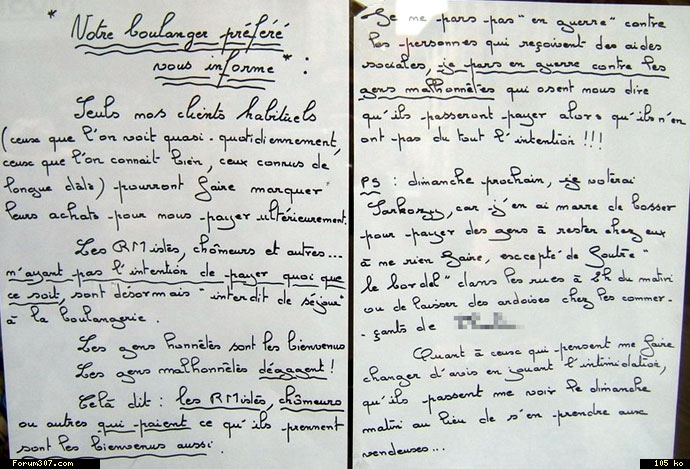 * Votre boulanger préféré
vous informe * :
Seuls nos clients habituels
(ceux que l'on voit quasi-quotidiennement,
ceux que l'on connait bien, ceux connus de
longue date) pourront faire marquer
leurs achats pour nous payer ultérieurement.
Les RMistes, chômeurs et autres...
n'ayant pas l'intention de payer quoi que
ce soit, sont désormais "interdit de séjour"
à la boulangerie.
Les gens honnêtes sont les bienvenus
Les gens malhonnêtes dégagent !
Celà dit : les RMistes, chômeurs
ou autres qui paient ce qu'ils prennent
sont les bienvenus aussi.
Je ne pars pas "en guerre" contre
les personnes qui reçoivent des aides
sociales, je pars en guerre contre les
gens malhonnêtes qui osent nous dire
qu'ils passeront payer alors qu'ils n'en
ont pas du tout l'intention !!!
PS : dimanche prochain, je voterai
Sarkozy, car j'en ai marre de bosser
pour payer des gens à rester chez eux
à ne rien faire, excepté de foutre "
le bordel" dans les rues à 2h du matin
ou de laisser des ardoises chez les commer-
-çants de
Quant à ceux qui pensent me faire
changer d'avis en jouant l'intimidation,
qu'ils passent me voir le dimanche
matin au lieu de s'en prendre aux
vendeuses...
Forum307.com
105 ko